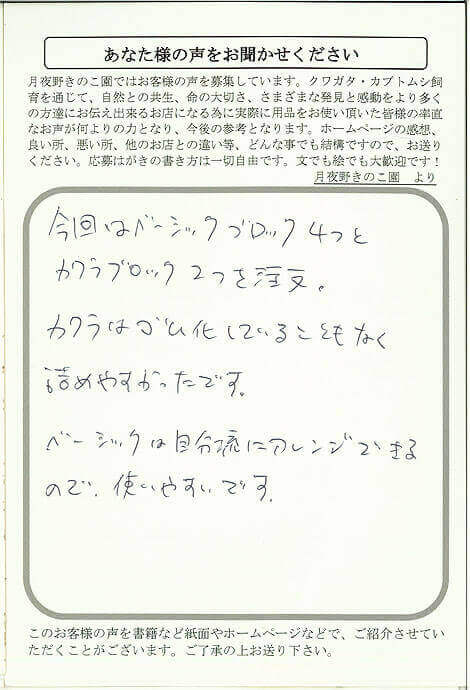 あなた様の声をお聞かせください
月夜野きのこ園ではお客様の声を募集しています。クワガタ・カブトムシ飼
育を通じて、自然との共生、命の大切さ、さまざまな発見と感動をより多く
の方達にお伝え出来るお店になる為に実際に用品をお使い頂いた皆様の率直
なお声が何よりの力となり、今後の参考となります。ホームページの感想、
良い所、悪い所、他のお店との違い等、どんな事でも結構ですので、お送り
ください。応募はがきの書き方は一切自由です。文でも絵でも大歓迎です！
月夜野きのこ園　より
今回はベーシックブロック4つと
カワラブロック2つを注文。
カワラはゴム化していることもなく
詰めやすかったです。
ベーシックは自分流にアレンジできる
ので、使いやすいです。
このお客様の声を書籍など紙面やホームページなどで、ご紹介させてい
ただくことがございます。ご了承の上お送り下さい。